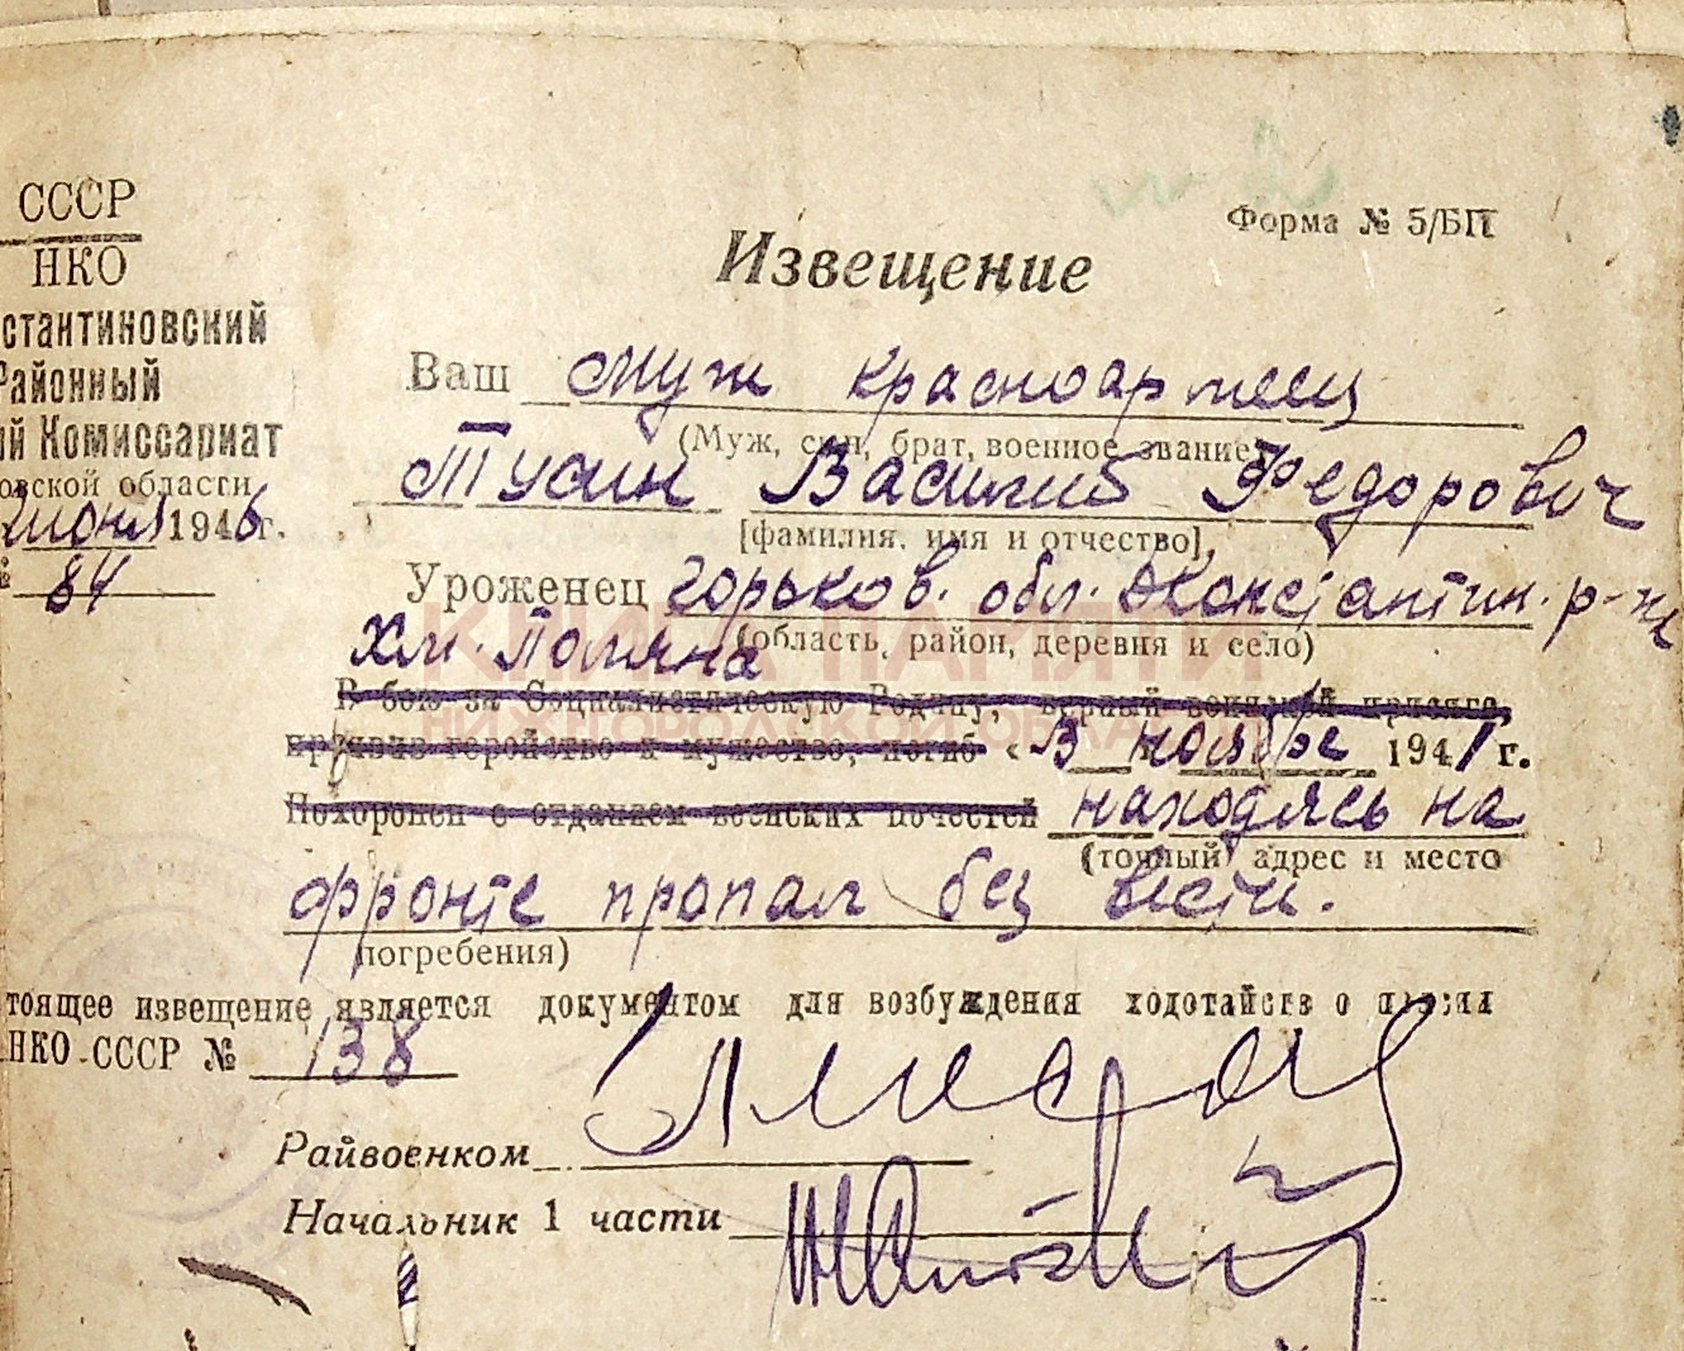 СССР
НКО
стантиновский
Районный
ий Комиссариат
овской области
июня 1946 г.
№ 84
Форма № 5/БП
Извещение
Ваш муж красноармеец
(Муж, сын, брат, военное звание)
Тусин Василий Федорович
[фамилия, имя и отчество],
Уроженец Горьков. обл. Д.Константин. р-н
(область, район, деревня и село)
Хм. Поляна
В бою за Социалистическую Родину, верный воинской присяге,
проявив геройство и мужество, погиб « В ноябре 1941 г.
Похоронен с отданием воинских почестей находясь на
(точный адрес и место
фронте пропал без вести.
погребения)
тоящее извещение является документом для возбуждения ходотайств о пенсии
НКО СССР № 138
Райвоенком
Начальник 1 части
КНИГА ПАМЯТИ
НИЖЕГОРОДСКОЙ ОБЛАСТИ